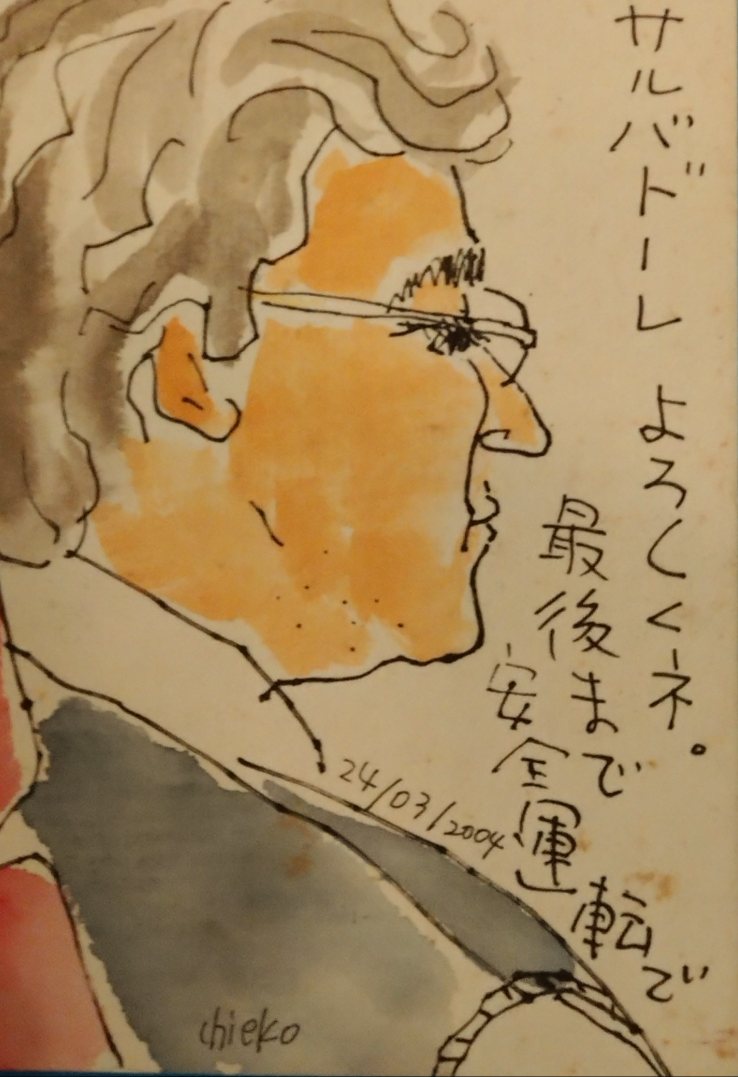 サルバドーレ よろしくネ。
最後まで
安全運転で
24/03/2004
chieko